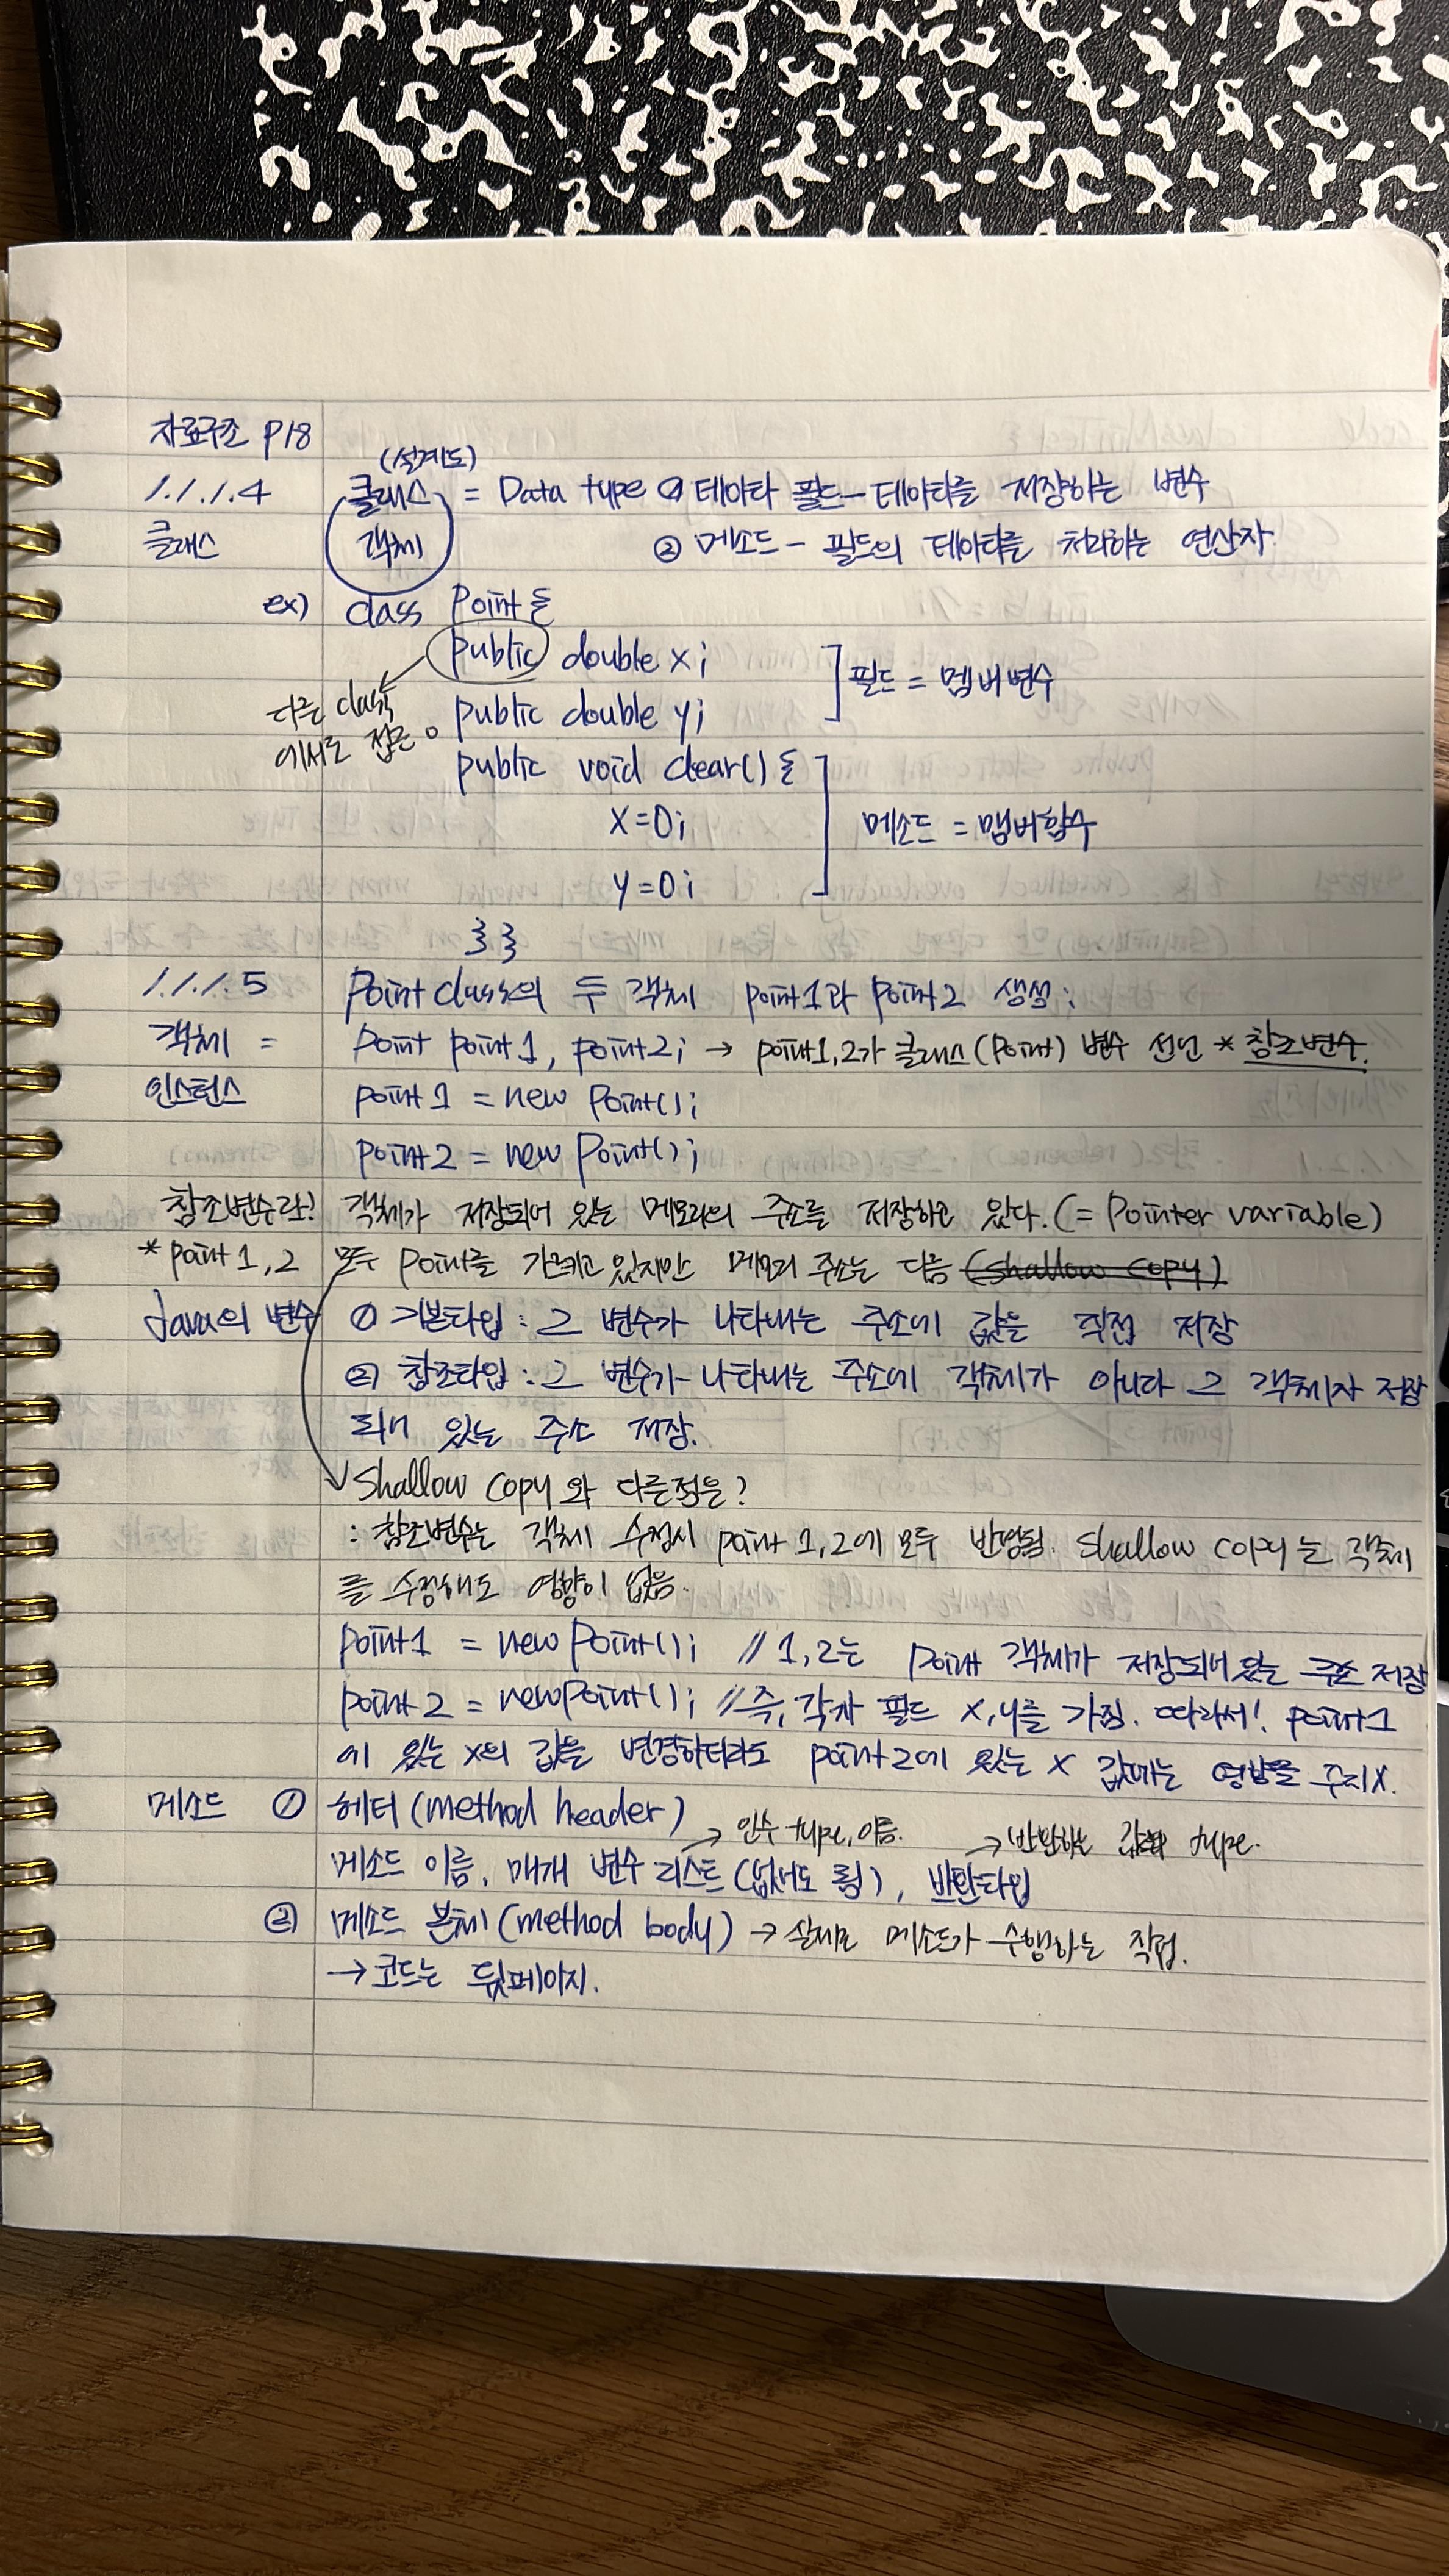 자료구조 P18
(설계도)
1.1.1.4 클래스 = Data type ① 데이타 필드 - 데이타를 저장하는 변수
클래스 객체 ② 메소드 - 필드의 데이타를 처리하는 연산자
ex) class Point {
public double x;
필드 = 멤버변수
다른 class
public double y;
에서도 접근 o
public void clear() {
x=0;
메소드 = 맴버함수
y=0;
} }
1.1.1.5 Point class의 두 객체 point1과 point2 생성:
객체 = Point point1, point2; → point1,2가 클래스(Point) 변수 선언 * 참조변수.
인스턴스 point1 = new Point();
point2 = new Point();
참조변수란? 객체가 저장되어 있는 메모리의 주소를 저장하고 있다. (= Pointer variable)
* point 1,2 모두 Point를 가르키고 있지만 메모리 주소는 다름 (shallow copy).
Java의 변수 ① 기본타입 : 그 변수가 나타내는 주소에 값을 직접 저장
② 참조타입 : 그 변수가 나타내는 주소에 객체가 아니라 그 객체자 저장
되어 있는 주소 저장.
Shallow copy 와 다른점은?
: 참조변수는 객체 수정시 point 1,2에 모두 반영됨. Shallow copy는 객체
를 수정해도 영향이 없음.
point1 = new Point(); // 1,2는 Point 객체가 저장되어 있는 주소 저장
point2 = new Point(); // 즉, 각자 필드 x,y를 가짐. 따라서! point1
에 있는 x의 값을 변경하더라도 point2에 있는 x 값에는 영향을 주지X.
메소드 ① 헤더 (method header)
→ 인수 type, 이름. → 반환하는 값의 type.
메소드 이름, 매개 변수 리스트 (없어도 됨), 반환타입
② 메소드 본체 (method body) → 실제로 메소드가 수행하는 작업.
→ 코드는 뒷페이지.